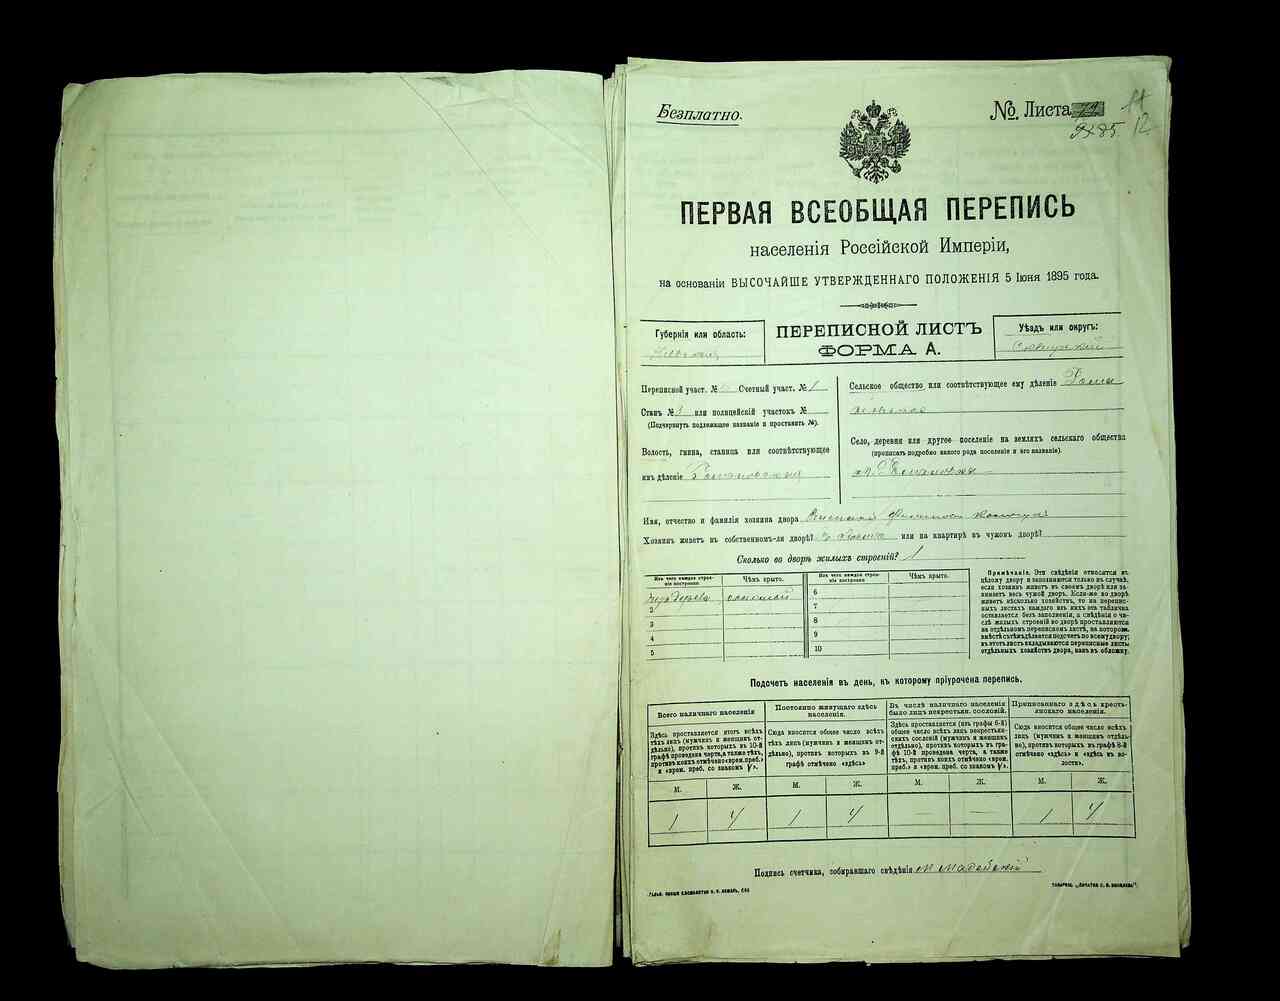 Безплатно.
№. Листа
9х85. 12
ПЕРВАЯ ВСЕОБЩАЯ ПЕРЕПИСЬ
населенія Россійской Имперіи,
на основаніи ВЫСОЧАЙШЕ УТВЕРЖДЕННАГО ПОЛОЖЕНІЯ 5 Іюня 1895 года.
Губернія или область:
ПЕРЕПИСНОЙ ЛИСТЪ
ФОРМА А.
Уѣздъ или округъ:
Переписной участ. № Счетный участ. № 1
Станъ № 3 или полицейскій участокъ №
(Подчеркнуть подлежащее названіе и проставить №).
Волость, гмина, станица или соотвѣтствующее
имъ дѣленіе
Сельское общество или соотвѣтствующее ему дѣленіе
Село, деревня или другое поселеніе на земляхъ сельскаго общества
(прописать подробно какого рода поселеніе и его названіе).
м. Романовка
Имя, отчество и фамилія хозяина двора
Хозяинъ живетъ въ собственномъ-ли дворѣ? или на квартирѣ въ чужомъ дворѣ?
Сколько во дворѣ жилыхъ строеній? 1
Изъ чего каждое строеніе построено
Чѣмъ крыто.
Изъ чего каждое строеніе построено
Чѣмъ крыто.
изъ дерева соломой
2
3
4
5
6
7
8
9
10
Примѣчаніе. Эти свѣдѣнія относятся къ
цѣлому двору и заполняются только въ случаѣ,
если хозяинъ живетъ въ своемъ дворѣ или за-
нимаетъ весь чужой дворъ. Если-же во дворѣ
живетъ нѣсколько хозяйствъ, то на перепис-
ныхъ листахъ каждаго изъ нихъ эта табличка
оставляется безъ заполненія, а свѣдѣнія о чи-
слѣ жилыхъ строеній во дворѣ проставляются
на отдѣльномъ переписномъ листѣ, на которомъ
вмѣстѣ съ тѣмъ дѣлается подсчетъ по всему двору;
въ этотъ листъ вкладываются переписные листы
отдѣльныхъ хозяйствъ двора, какъ въ обложку.
Подсчетъ населенія въ день, къ которому пріурочена перепись.
Всего наличнаго населенія
Постоянно живущаго здѣсь
населенія.
Въ числѣ наличнаго населенія
было лицъ некрестьян. сословій.
Приписаннаго здѣсь кресть-
янскаго населенія.
Здѣсь проставляется итогъ всѣхъ
тѣхъ лицъ (мужчинъ и женщинъ от-
дѣльно), противъ которыхъ въ 10-й
графѣ проведена черта, а также тѣхъ,
противъ коихъ отмѣчено «врем. преб.»
и «врем. преб. со знакомъ V».
Сюда вносится общее число всѣхъ
тѣхъ лицъ (мужчинъ и женщинъ от-
дѣльно), противъ которыхъ въ 9-й
графѣ отмѣчено «здѣсь»
Здѣсь проставляется (изъ графы 6-й)
общее число всѣхъ лицъ некрестьян-
скихъ сословій (мужчинъ и женщинъ
отдѣльно), противъ которыхъ въ гра-
фѣ 10-й проведена черта, а также
тѣхъ, противъ коихъ отмѣчено «врем.
преб.» и «врем. преб. со знакомъ V».
Сюда вносится общее число всѣхъ
лицъ (мужчинъ и женщинъ отдѣль-
но), противъ которыхъ въ графѣ 8-й
отмѣчено «здѣсь» и «здѣсь въ во-
лости».
М. Ж. М. Ж. М. Ж. М. Ж.
1 4 1 4 — — 1 4
Подпись счетчика, собиравшаго свѣдѣнія